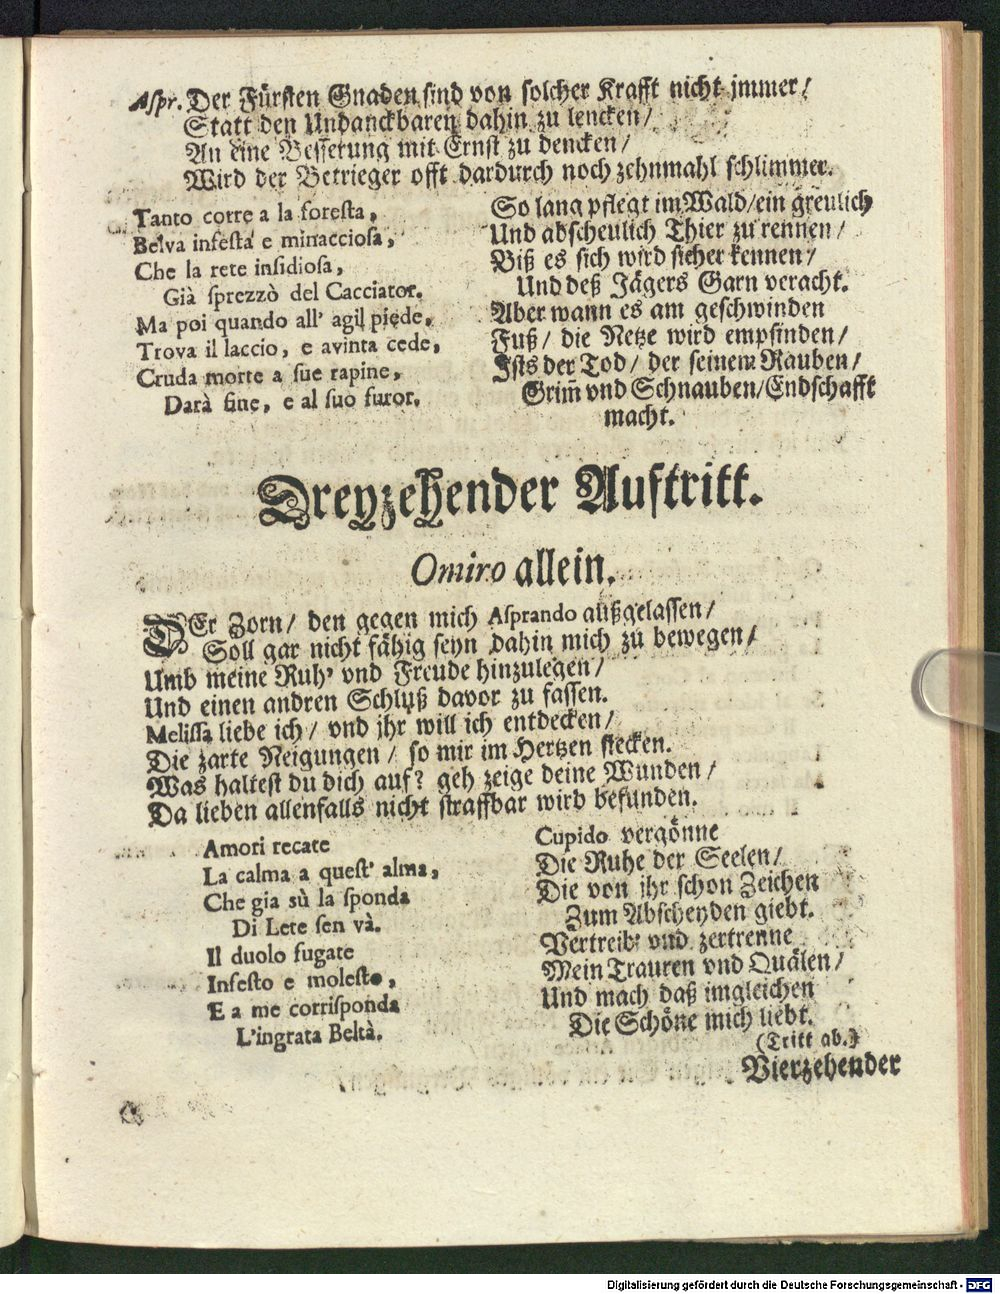 Aſpr. Der Fürſten Gnaden ſind von ſolcher Krafft nicht jmmer/
Statt den Undanckbaren dahin zu lencken/
An eine Beſſerung mit Ernſt zu dencken/
Wird der Betrieger offt dardurch noch zehnmahl ſchlimmer.
Tanto corre a la foreſta,
Belva infeſta e minaccioſa,
Che la rete inſidioſa,
Già ſprezzò del Cacciator.
Ma poi quando all' agil piede,
Trova il laccio, e avinta cede,
Cruda morte a ſue rapine,
Darà fine, e al ſuo furor.
So lang pflegt im Wald/ein greulich
Und abſcheulich Thier zu rennen/
Biß es ſich wird ſicher kennen/
Und deß Jägers Garn veracht.
Aber wann es am geſchwinden
Fuß/ die Netze wird empfinden/
Iſts der Tod/ der ſeinem Rauben/
Grim̃ vnd Schnauben/Endſchafft
macht.
Dreyzehender Auftritt.
Omiro allein.
DEr Zorn/ den gegen mich Aſprando außgelaſſen/
Soll gar nicht fähig ſeyn dahin mich zu bewegen/
Umb meine Ruh' vnd Freude hinzulegen/
Und einen andren Schluß davor zu faſſen.
Meliſſa liebe ich/ vnd jhr will ich entdecken/
Die zarte Neigungen/ ſo mir im Hertzen ſtecken.
Was halteſt du dich auf? geh zeige deine Wunden/
Da lieben allenfalls nicht ſtraffbar wird befunden.
Amori recate
La calma a queſt' alma,
Che gia sù la ſponda
Di Lete ſen và.
Il duolo fugate
Infeſto e moleſto,
E a me corriſponda
L'ingrata Beltà.
Cupido vergönne
Die Ruhe der Seelen/
Die von jhr ſchon Zeichen
Zum Abſcheyden giebt.
Vertreib' vnd zertrenne
Mein Trauren vnd Quälen/
Und mach daß imgleichen
Die Schöne mich liebt.
(Tritt ab.)
Vierzehender
Digitalisierung gefördert durch die Deutsche Forschungsgemeinschaft - DFG